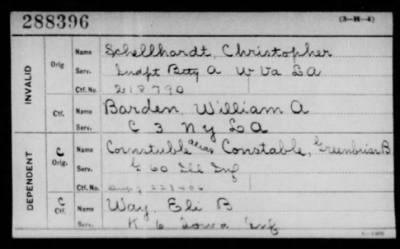 288396 (3-M-4)
INVALID
Orig Name Schellhardt, Christopher
Serv. Indpt Batty A W Va L A
Ctf. No. 218790
Ctf. Name Barden, William A
Serv. C 3 N Y L A
DEPENDENT
C Orig. Name Cornstubble alias Constable, Greenbrier B
60 Ill Inf
Ctf. No.
C Ctf. Name Way, Eli B
K 6 Iowa Inf